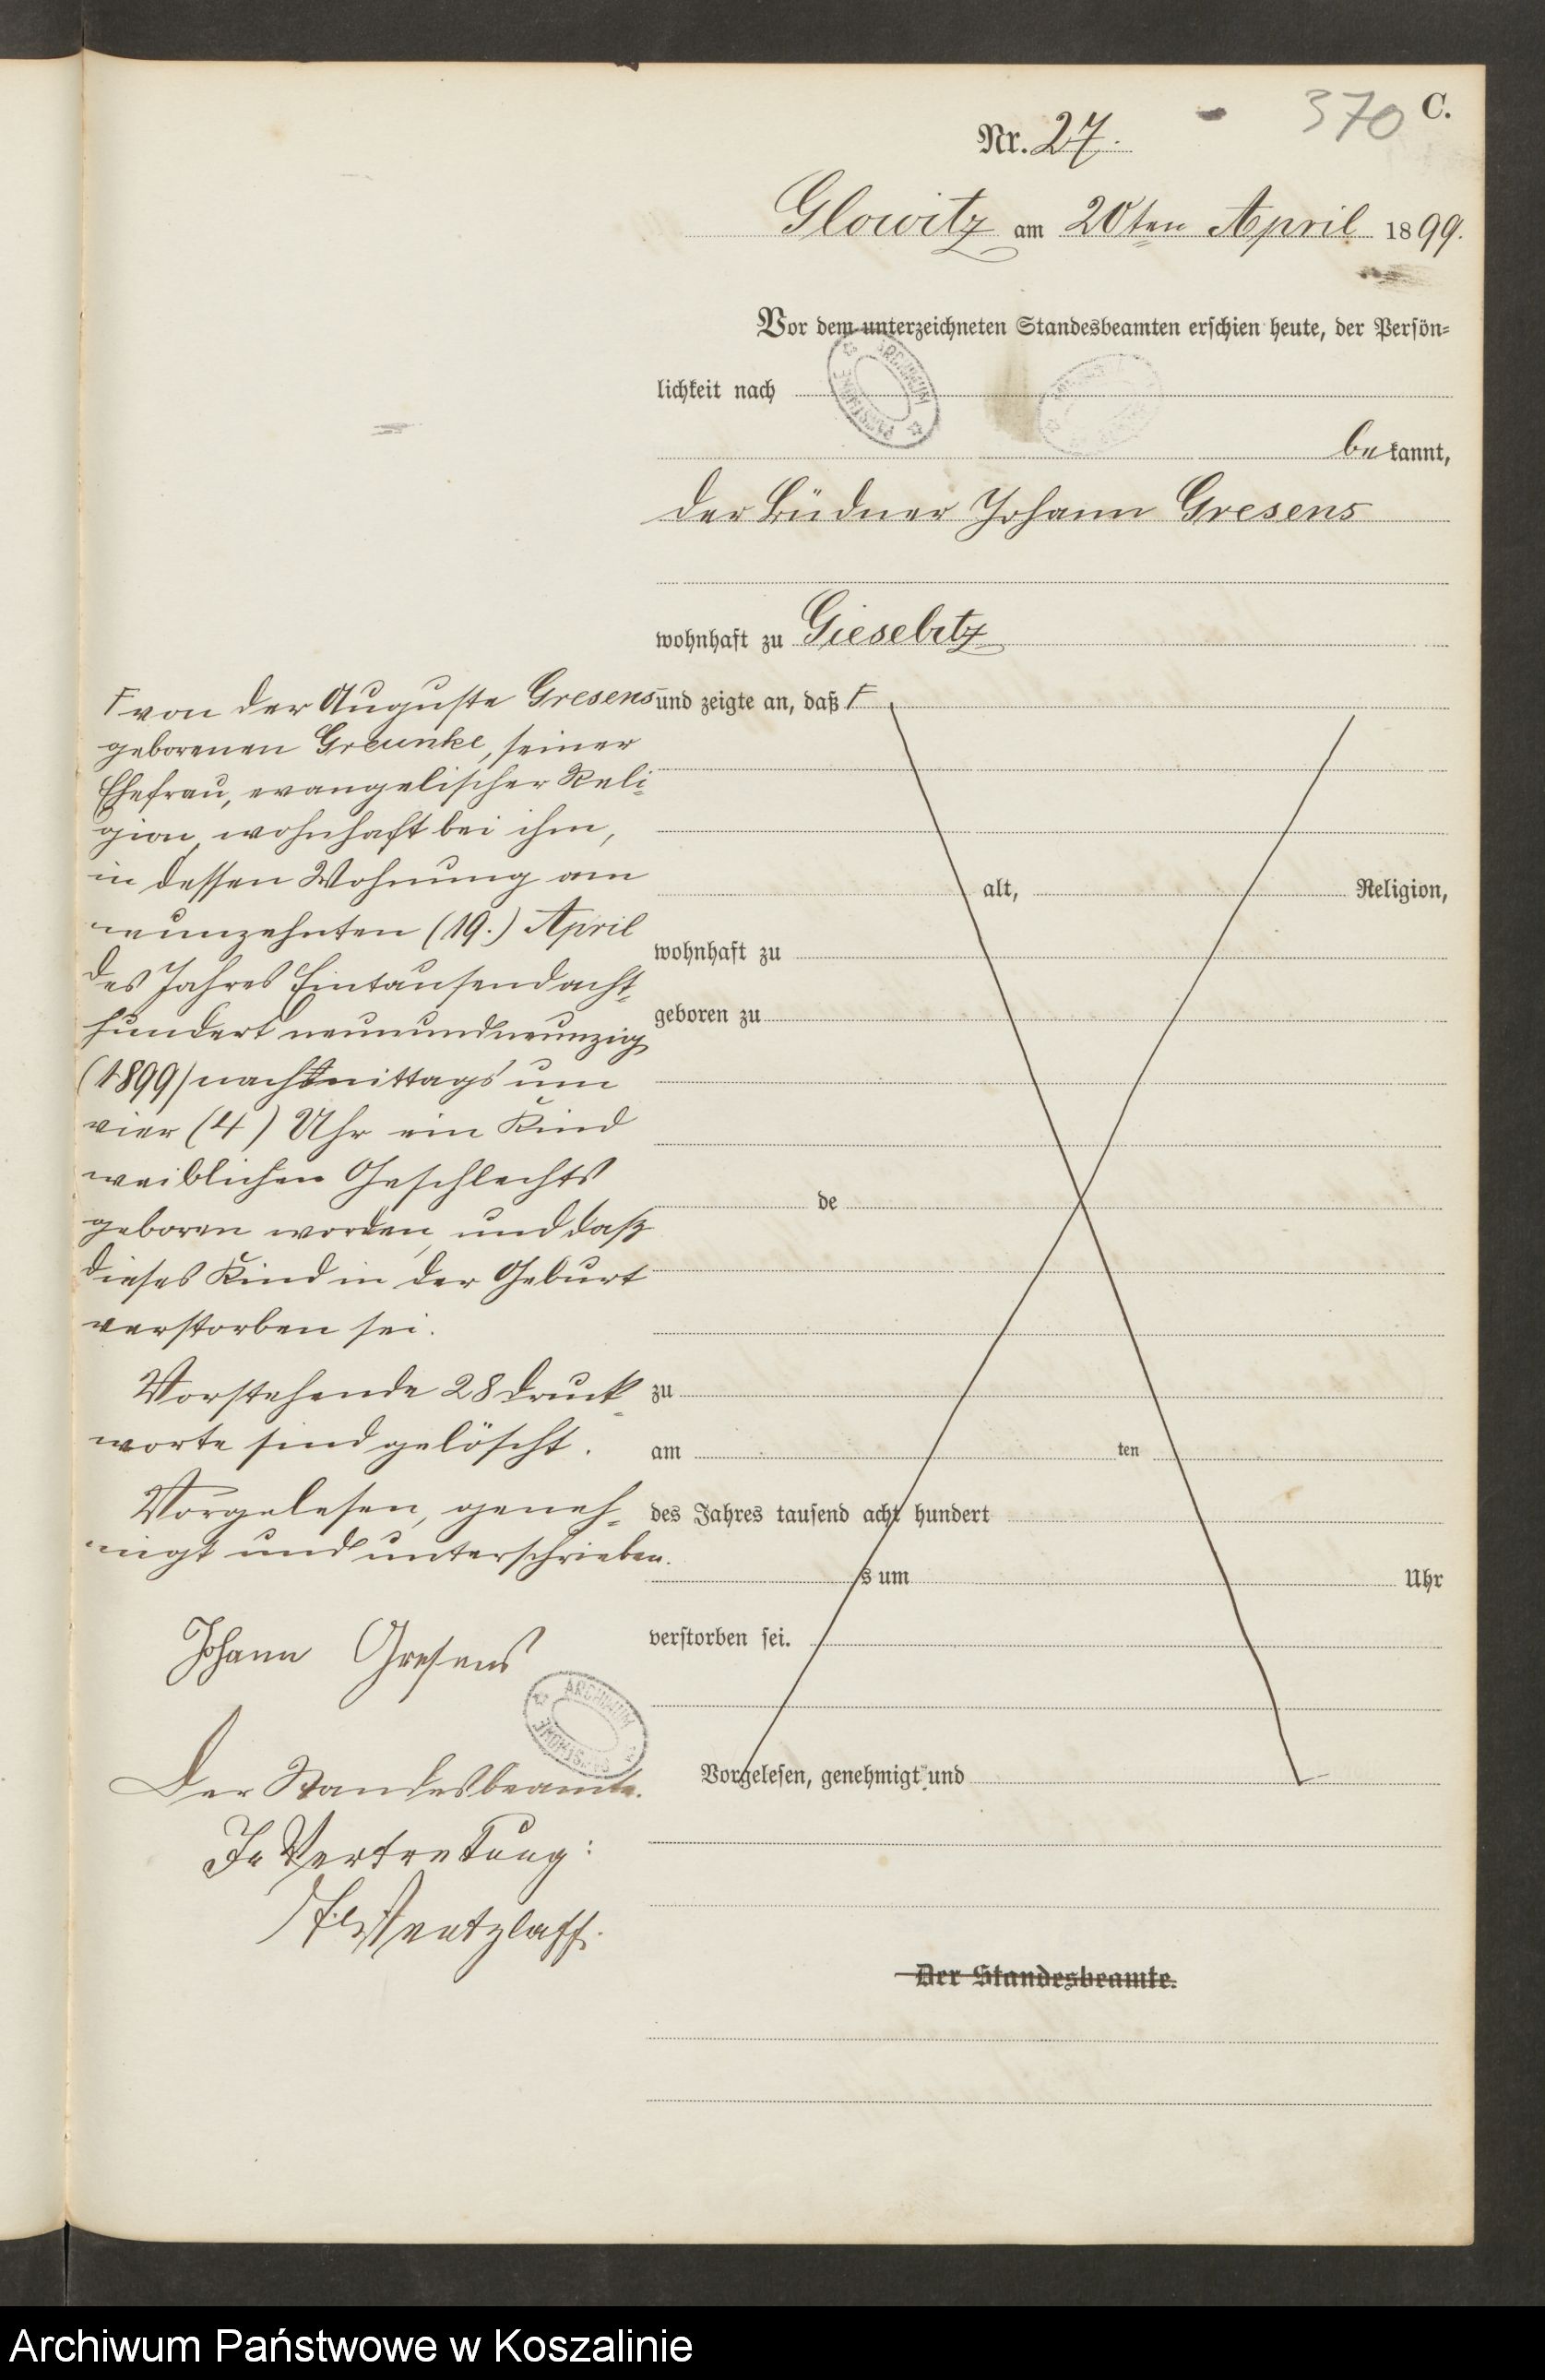 370 C.
Nr. 27.
Glowitz am 20ten April 1899.
Vor dem unterzeichneten Standesbeamten erschien heute, der Persön=
lichkeit nach
bekannt,
der Büdner Johann Gresens
wohnhaft zu Giesebitz
und zeigte an, daß F
alt, Religion,
wohnhaft zu
geboren zu
de
zu
am ten
des Jahres tausend acht hundert
s um Uhr
verstorben sei.
Vorgelesen, genehmigt und
Der Standesbeamte.
F von der Auguste Gresens
geborenen Greunke, seiner
Ehefrau, evangelischer Reli-
gion, wohnhaft bei ihm,
in dessen Wohnung am
neunzehnten (19.) April
des Jahres Eintausendacht-
hundert neunundneunzig
(1899) nachmittags um
vier (4) Uhr ein Kind
weiblichen Geschlechts
geboren worden, und daß
dieses Kind in der Geburt
verstorben sei.
Vorstehende 28 Druck-
worte sind gelöscht.
Vorgelesen, geneh-
migt und unterschrieben.
Johann Gresens
Der Standesbeamte.
In Vertretung:
Wentzlaff.
ARCHIWUM
PAŃSTWOWE
Archiwum Państwowe w Koszalinie